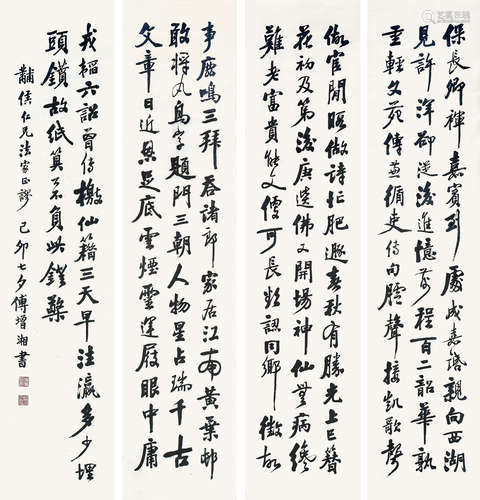 保長卿禪嘉賓到處成嘉話親向西湖
見許渾卻從後進憶前程百二韶華孰
重輕文苑傳兼循吏傳句臚聲接凱歌聲
做官閒暇做詩忙肥遯春秋有勝光上巳簪
花初及第後庚選佛又開場神仙無病
難老富貴能文便可長認同鄉徵故
事鹿鳴三拜吞諸郎家居江南黃葉邨
敢將凡鳥字題門三朝人物星占瑞千古
文章日近恩足底雲煙雲運屐眼中庸
戎韜六詔曾傳檄仙籍三天早注瀛多少埋
頭鑽故紙算不負此鐙檠
黼侯仁兄法家正謬 己卯七夕傅增湘書